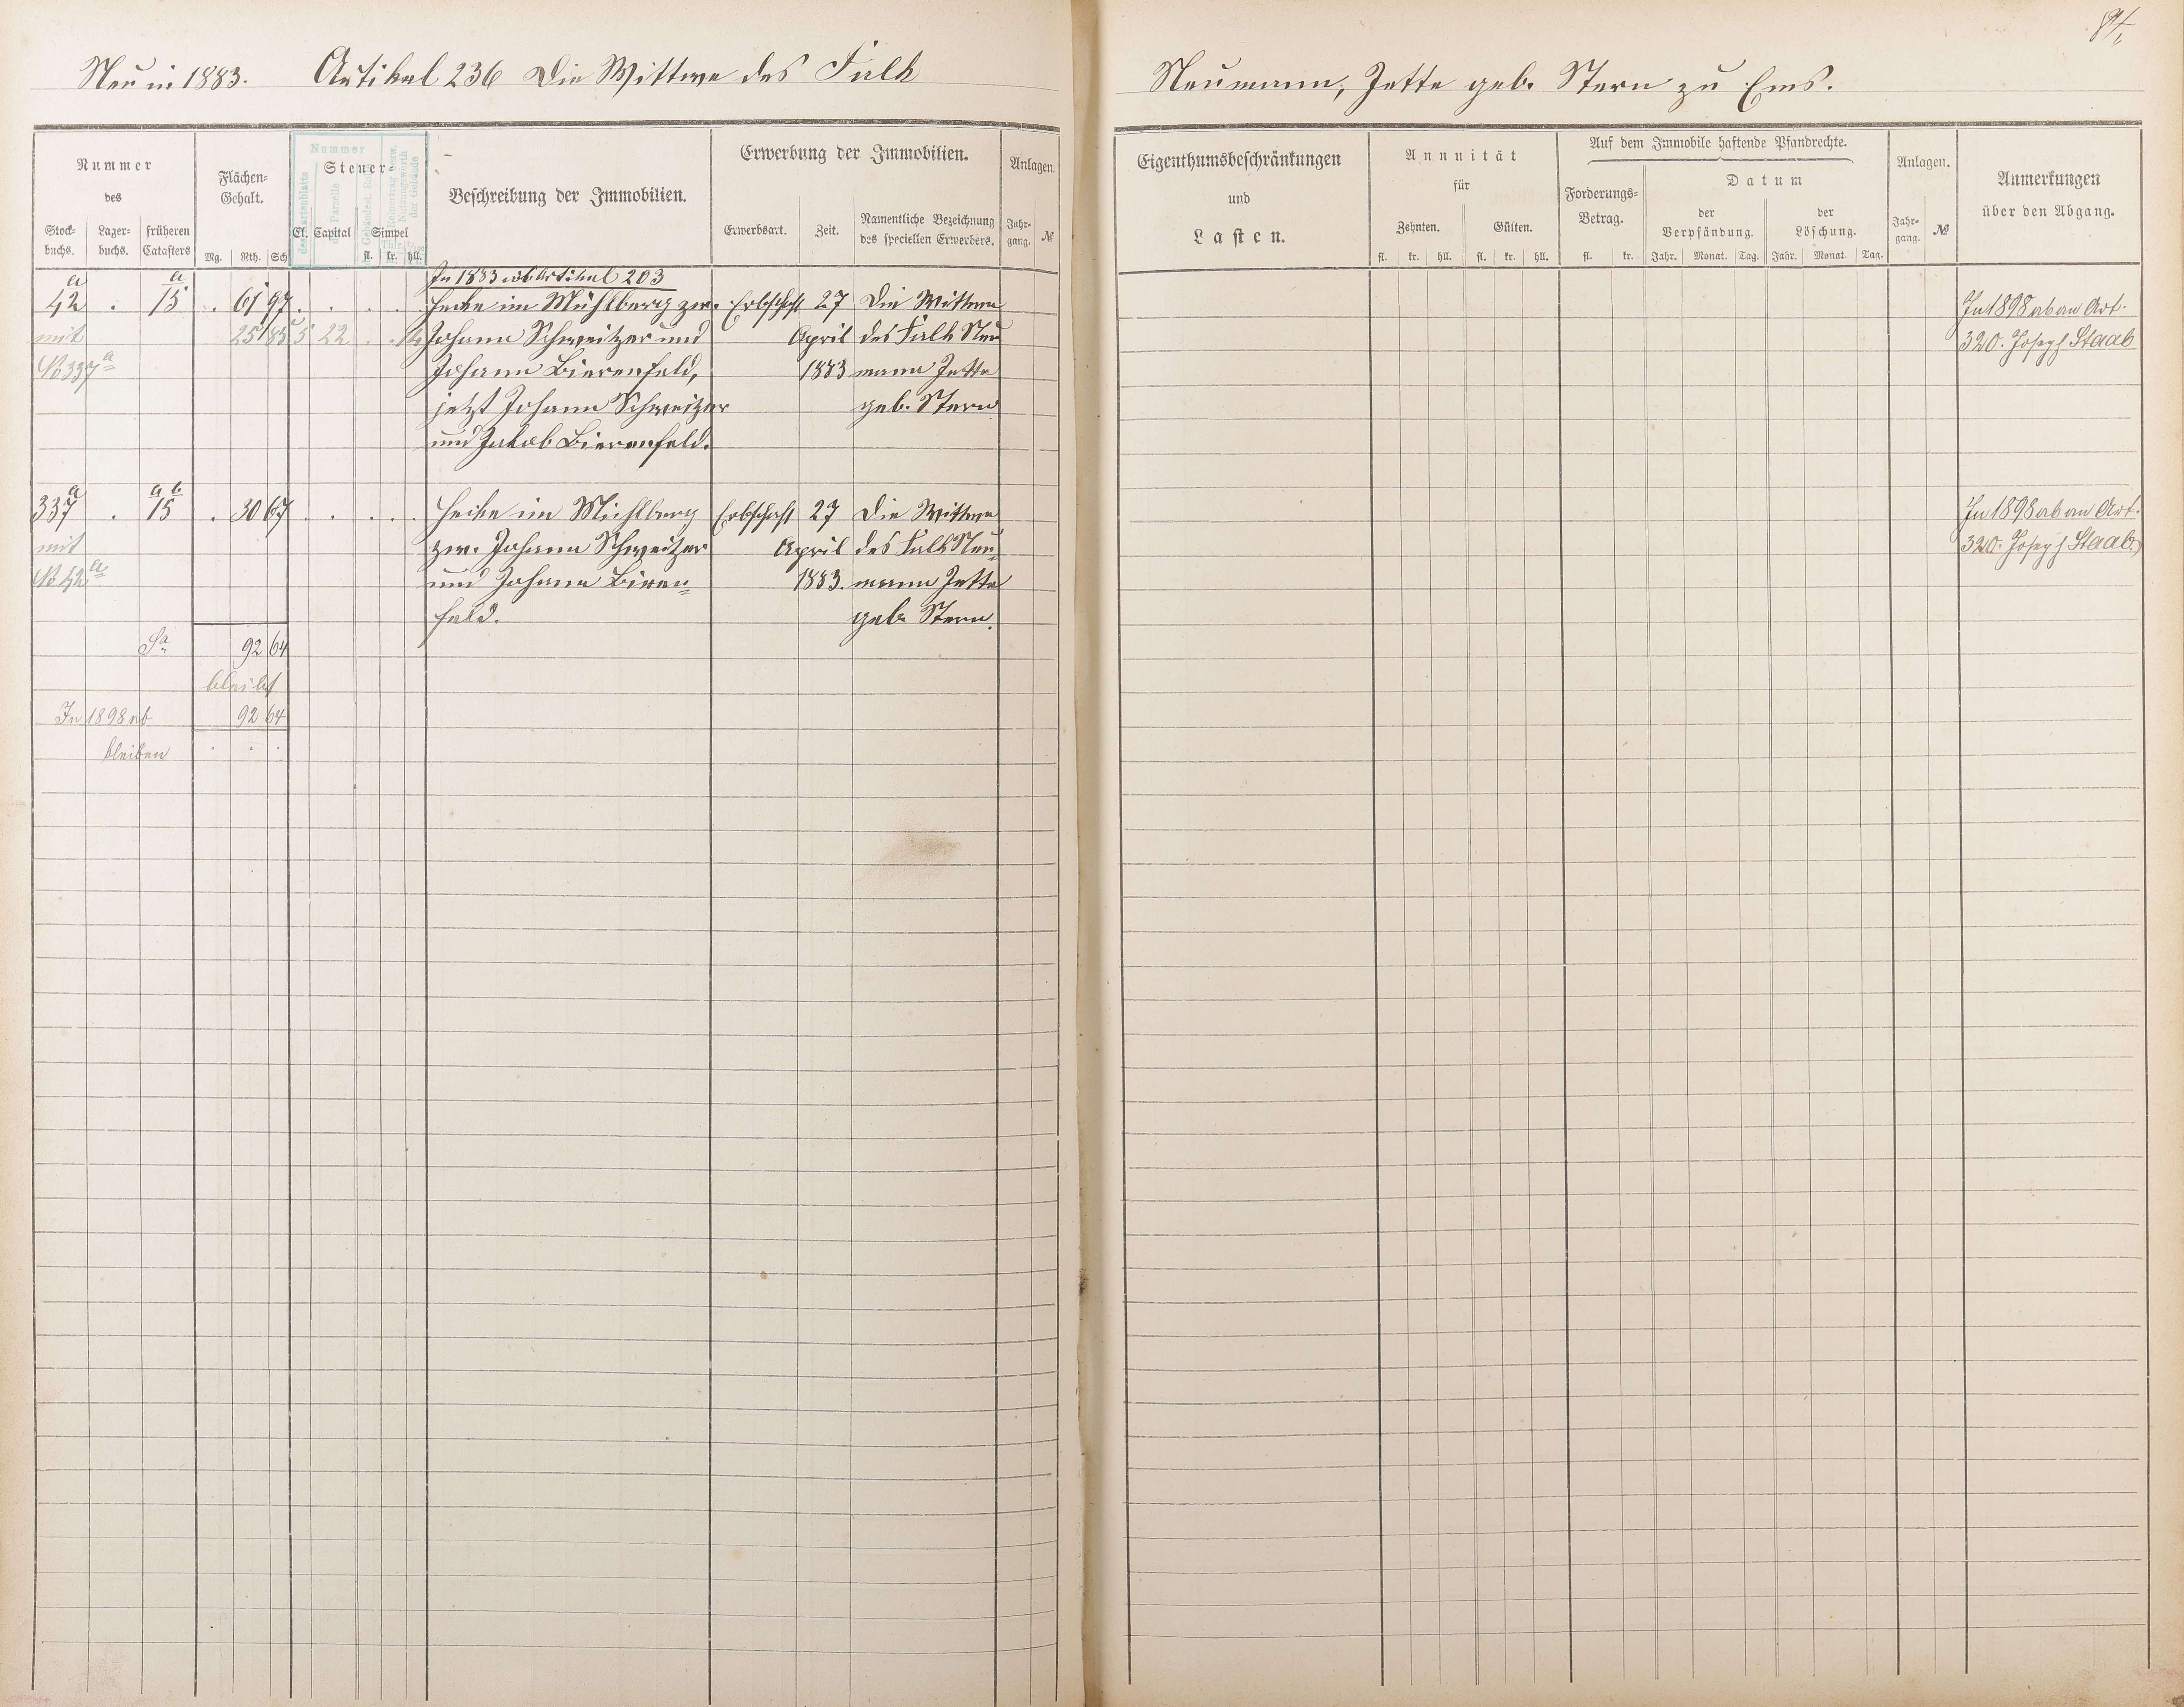 84.
Neu in 1883. Artikel 236 Die Wittwe des Falk Neumann, Jette geb. Stern zu Ems.
Nummer des
Stock-buchs. Lager-buchs. früheren Catasters
Flächen-Gehalt.
Mg. Rth. Sch
Nummer
Steuer-
des Kartenblatts
der Parzelle
der Gebäude
Cl. Capital Simpel
fl. kr. hll.
Beschreibung der Immobilien.
Erwerbung der Immobilien.
Erwerbsart. Zeit. Namentliche Bezeichnung des speciellen Erwerbers.
Anlagen.
Jahr-gang. №
Eigenthumsbeschränkungen
und
Lasten.
Annuität
für
Zehnten. Gülten.
fl. kr. hll. fl. kr. hll.
Auf dem Immobile haftende Pfandrechte.
Forderungs-Betrag.
Datum
der Verpfändung. der Löschung.
fl. kr. Jahr. Monat. Tag. Jahr. Monat. Tag.
Anlagen.
Jahr-gang. №
Anmerkungen
über den Abgang.
In 1883 ab Artikel 203
42 a . 15 a . 61 97 . . . . Hecke im Mühlberg zw. Erbschaft 27 Die Wittwe In 1898 ab an Art.
mit 25 85 5 22 . . 1/2 Johann Schweitzer und April des Falk Neu 320. Joseph Staab
No 337 a Johann Bierenfeld, 1883 mann Jette
jetzt Johann Schweitzer geb. Stern
und Jakob Bierenfeld.
337 a . 15 a b . 30 67 . . . . Hecke im Mühlberg Erbschaft 27 Die Wittwe In 1898 ab an Art.
mit zw. Johann Schweitzer April des Falk Neu 320. Joseph Staab.
No 42 a und Johann Biren= 1883. mann Jette
feld. geb. Stern.
Sa 92 64
bleibt
In 1898 ab 92 64
bleiben . . .